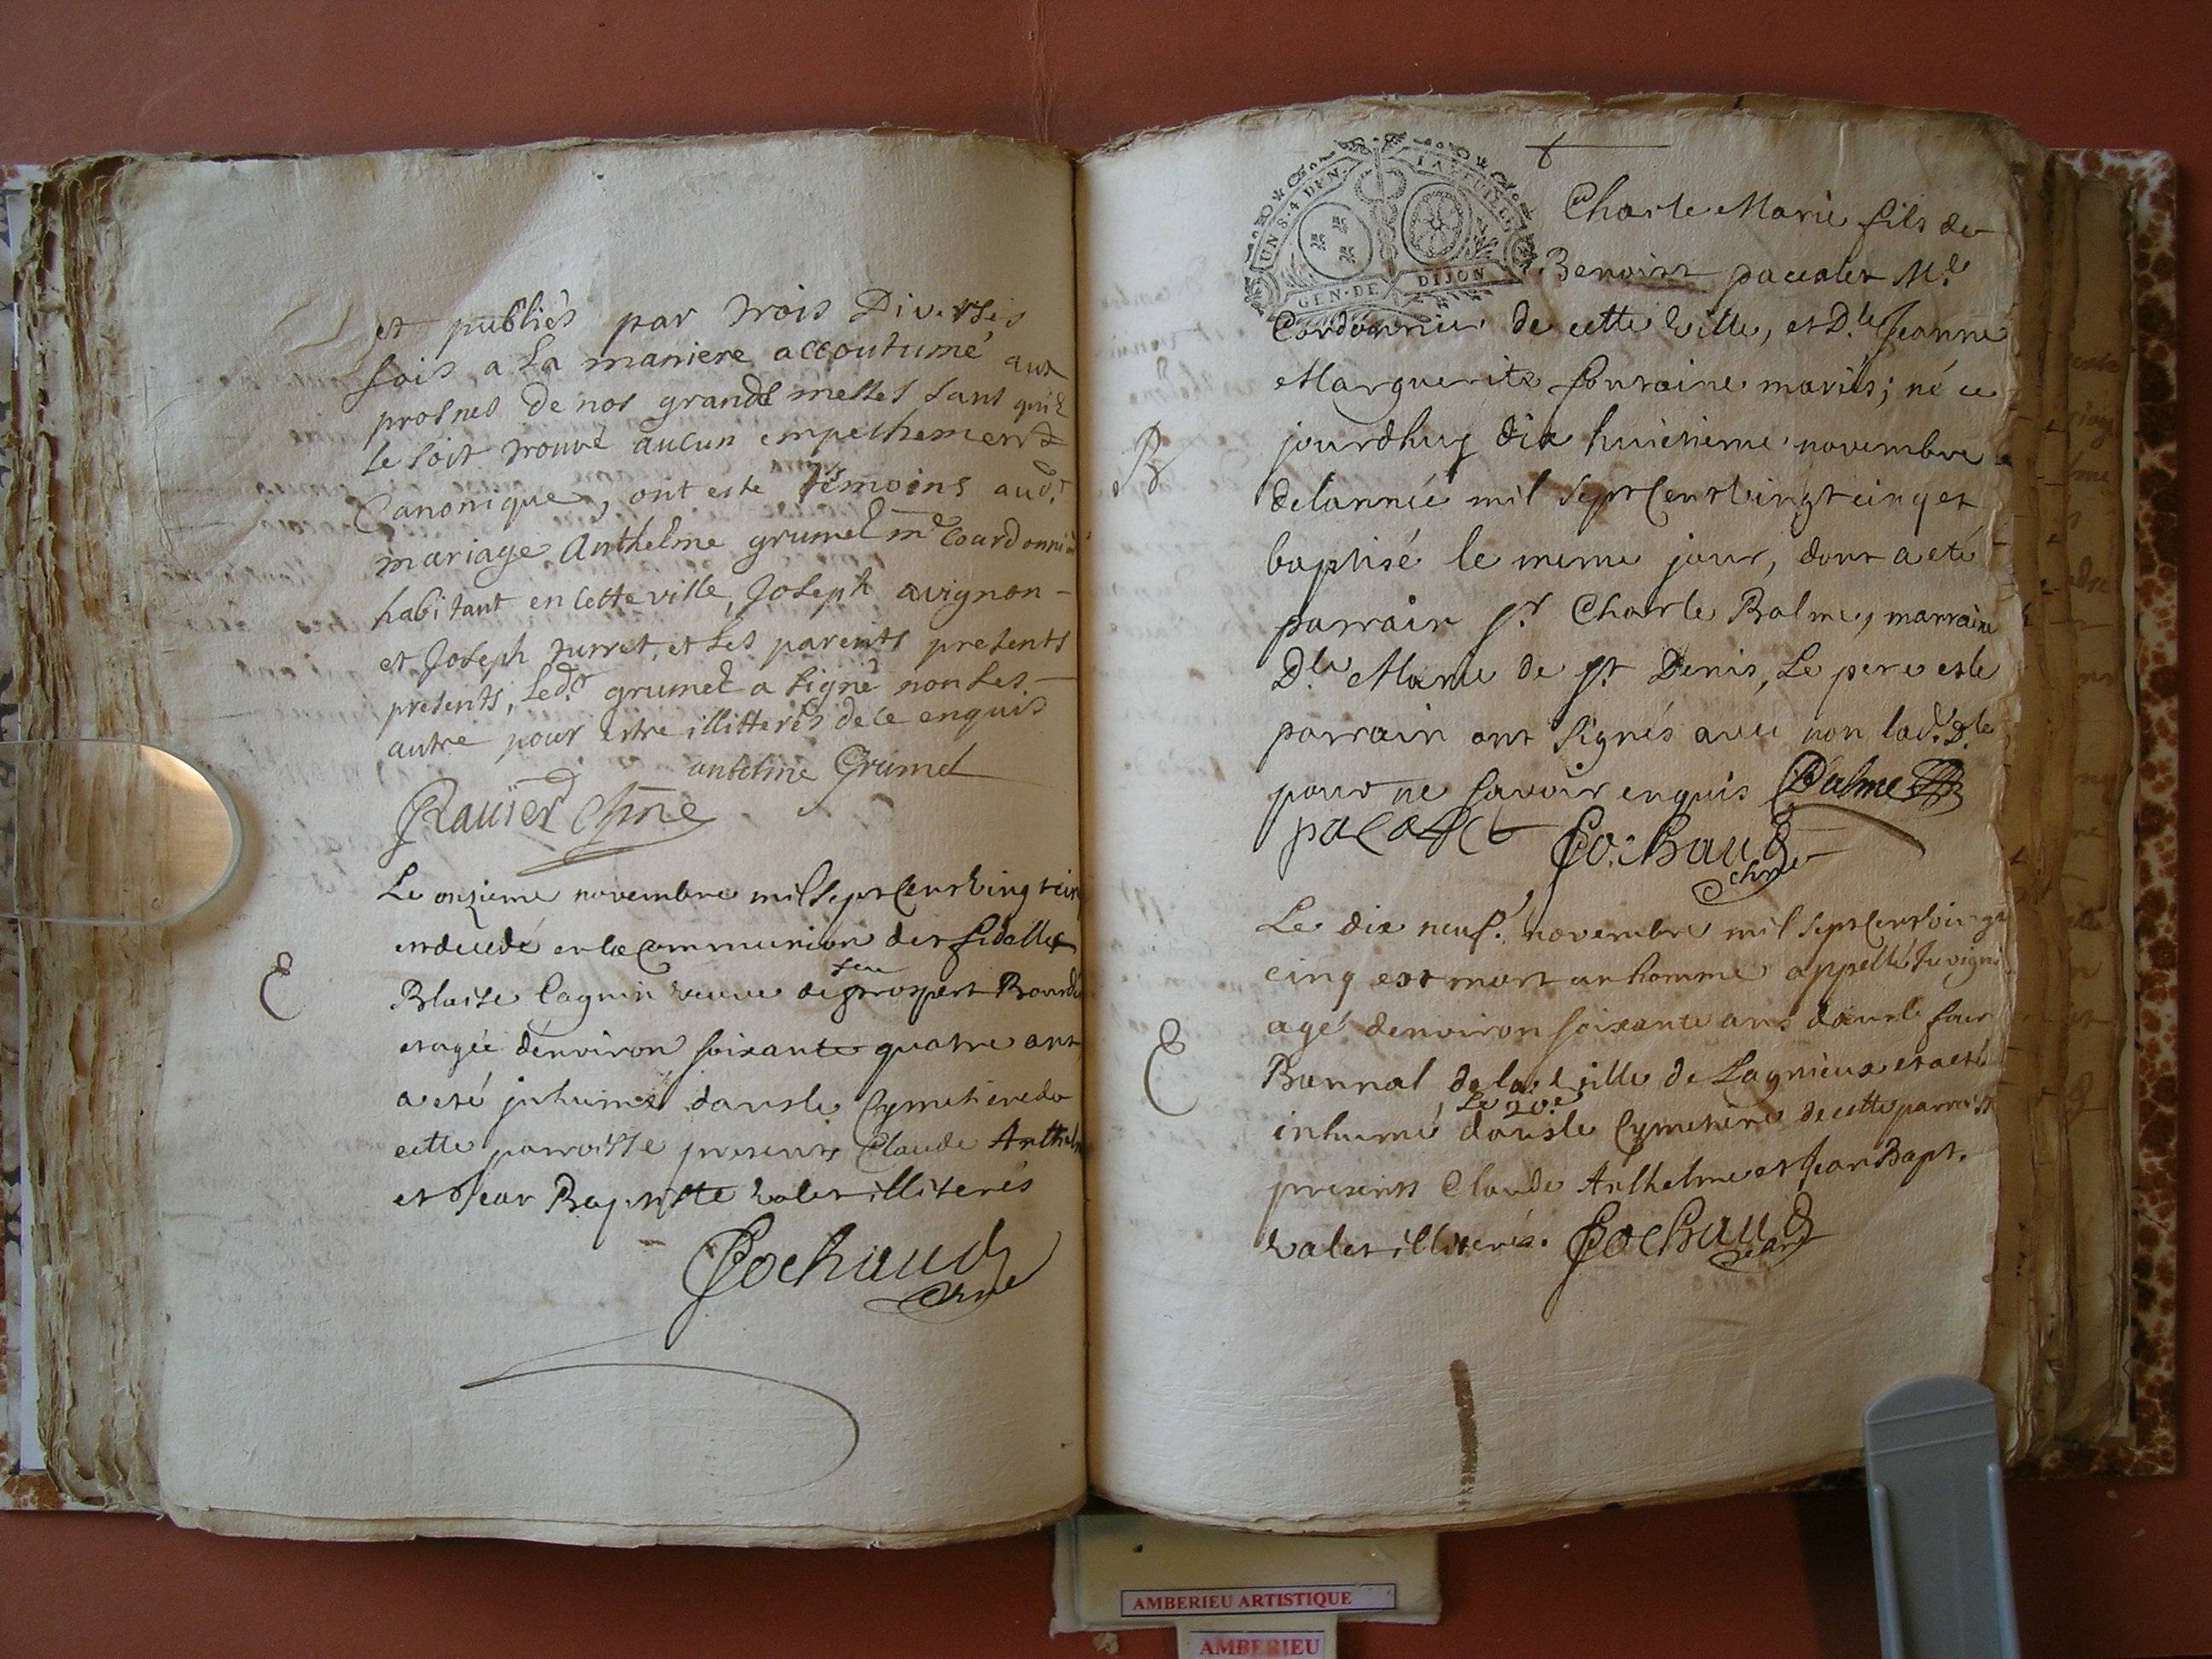 et publiés par trois Diverses
fois a La maniere accoutumé aux
prosnes de nos grandes messes sans qu'il
se soit trouvé aucun empechement
Canonique, ont este témoins aud.t
mariage Anthelme grumel m.e Courdonnier
habitant en cette ville, Joseph avignon
et Joseph turret, et Les parents presents
presents, Led.t grumel a signé non Les
autre pour estre illitteres de ce enquis
antelme Grumel
Ravier
Le onzieme novembre mil Sept Cent vingt cinq
est decedé en la Communion des fidelles
feu
Blaise Cagnin veuve de prospert
et agée denviron soixante quatre ans
a eté inhumé dans le Cymetiere de
cette parroisse presents Claude Anthelme
et Jean Baptiste valet illiterés
E
Cochaud
UN S. 4 DEN. LA FEUILLE
GEN. DE DIJON
Charle Marie fils de
Benoist pacalet M.e
Cordonnier de cette ville, et D.lle Jeanne
Marguerite fontaine mariés; né ce
jourdhuy dix huitieme novembre
B
delannée mil Sept Cent vingt cinq et
baptisé le meme jour, dont a eté
parrain s.r Charle Balme, marraine
D.lle Marie de s.t Denis, Le pere et le
parrain ont signés avec non lad.e D.lle
pour ne savoir enquis Balme
pacalet Cochaud
Le dix neuf novembre mil Sept Cent vingt
cinq est mort un homme appellé
agé denviron soixante ans dans le four
Bannal de la ville de Lagnieux et a eté
E
Le 20.e
inhumé dans le Cymetiere de cette parroisse
presents Claude Anthelme et Jean Bapt.
valet illiterés. Cochaud
AMBERIEU ARTISTIQUE
AMBERIEU